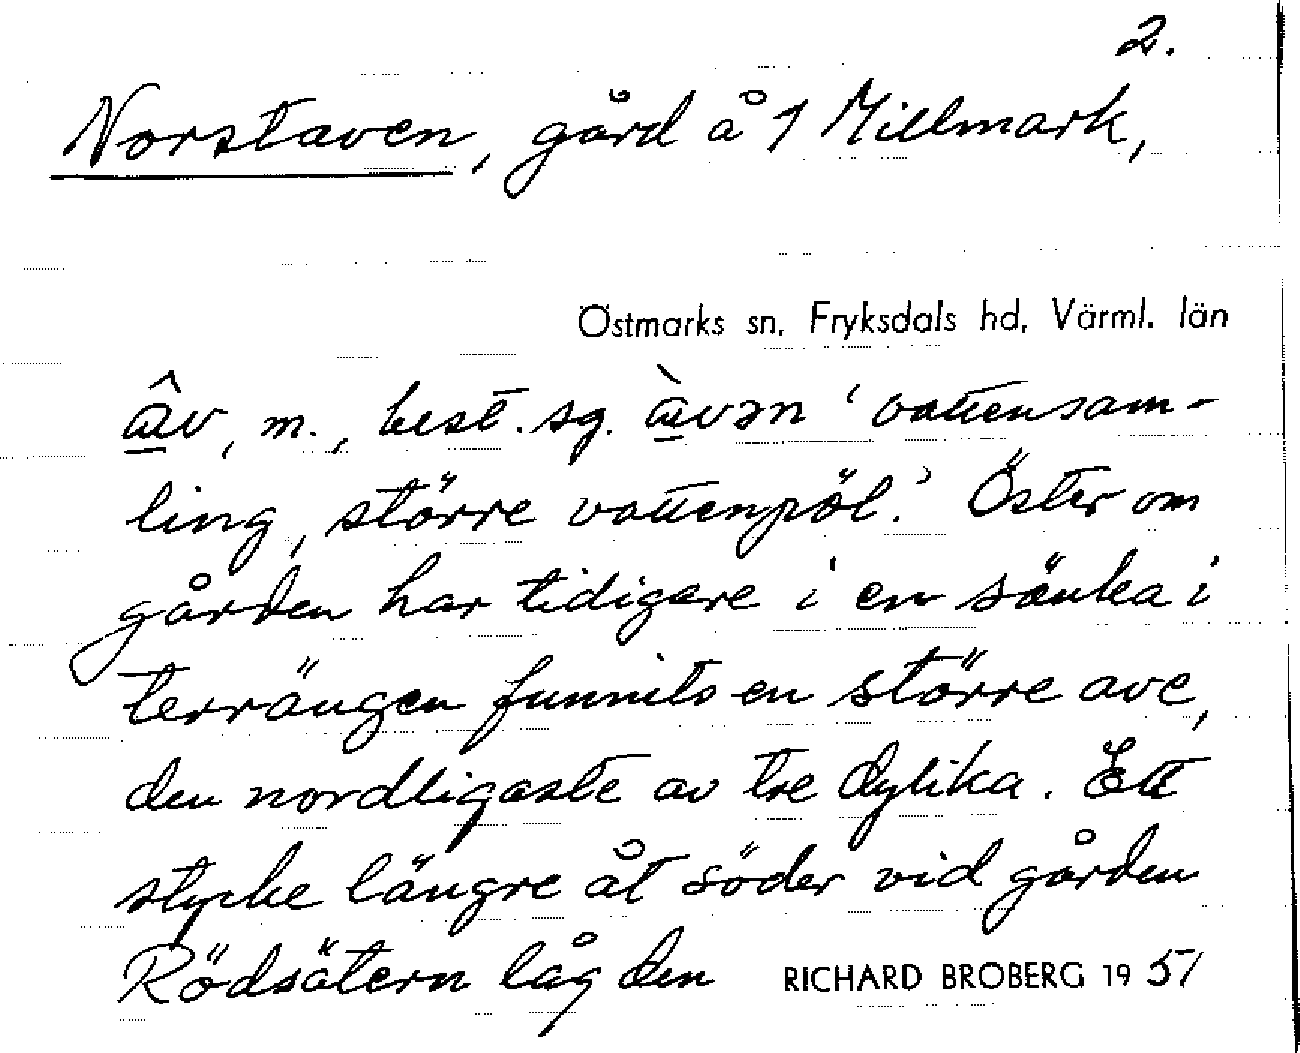 2.
Norstaven, gård å 1 Millmark,
Östmarks sn, Fryksdals hd, Värml. län
æ̂v, m., best. sg. æ̀vən ‘vattensam-
ling, större vattenpöl.’ Öster om
gården har tidigare i en sänka i
terrängen funnits en större ave,
den nordligaste av tre dylika. Ett
stycke längre åt söder vid gården
Rödsätern låg den RICHARD BROBERG 1951